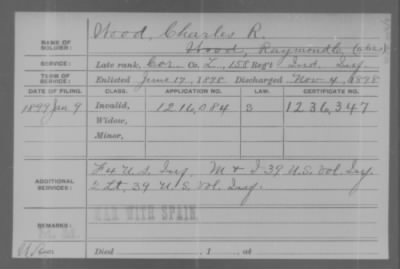 NAME OF SOLDIER: Wood, Charles R.
Wood, Raymond C. (alias)
SERVICE: Late rank, Cor. Co. L, 158 Reg't Ind. Inf.
TERM OF SERVICE: Enlisted June 17, 1898 Discharged Nov 4, 1898
DATE OF FILING. CLASS. APPLICATION NO. LAW. CERTIFICATE NO.
1899 Jan 9 Invalid, 1216,084 G 1,236,347
Widow,
Minor,
ADDITIONAL SERVICES: F 4 U.S. Inf. M & I 39 U.S. Vol. Inf.
2 Lt. 39 U.S. Vol. Inf.
WAR WITH SPAIN
REMARKS:
Died , 1 , at